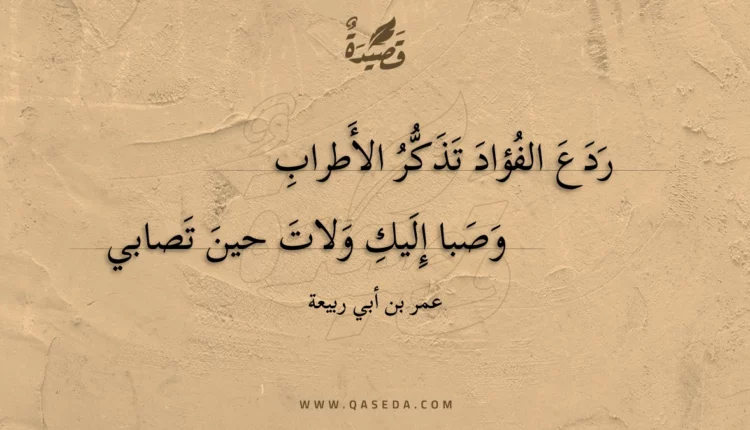 قَصِيدَةٌ
رَدَعَ الفُؤادَ تَذَكُّرُ الأَطرابِ
وَصَبا إِلَيكِ وَلاتَ حينَ تَصابي
عمر بن أبي ربيعة
WWW.QASEDA.COM